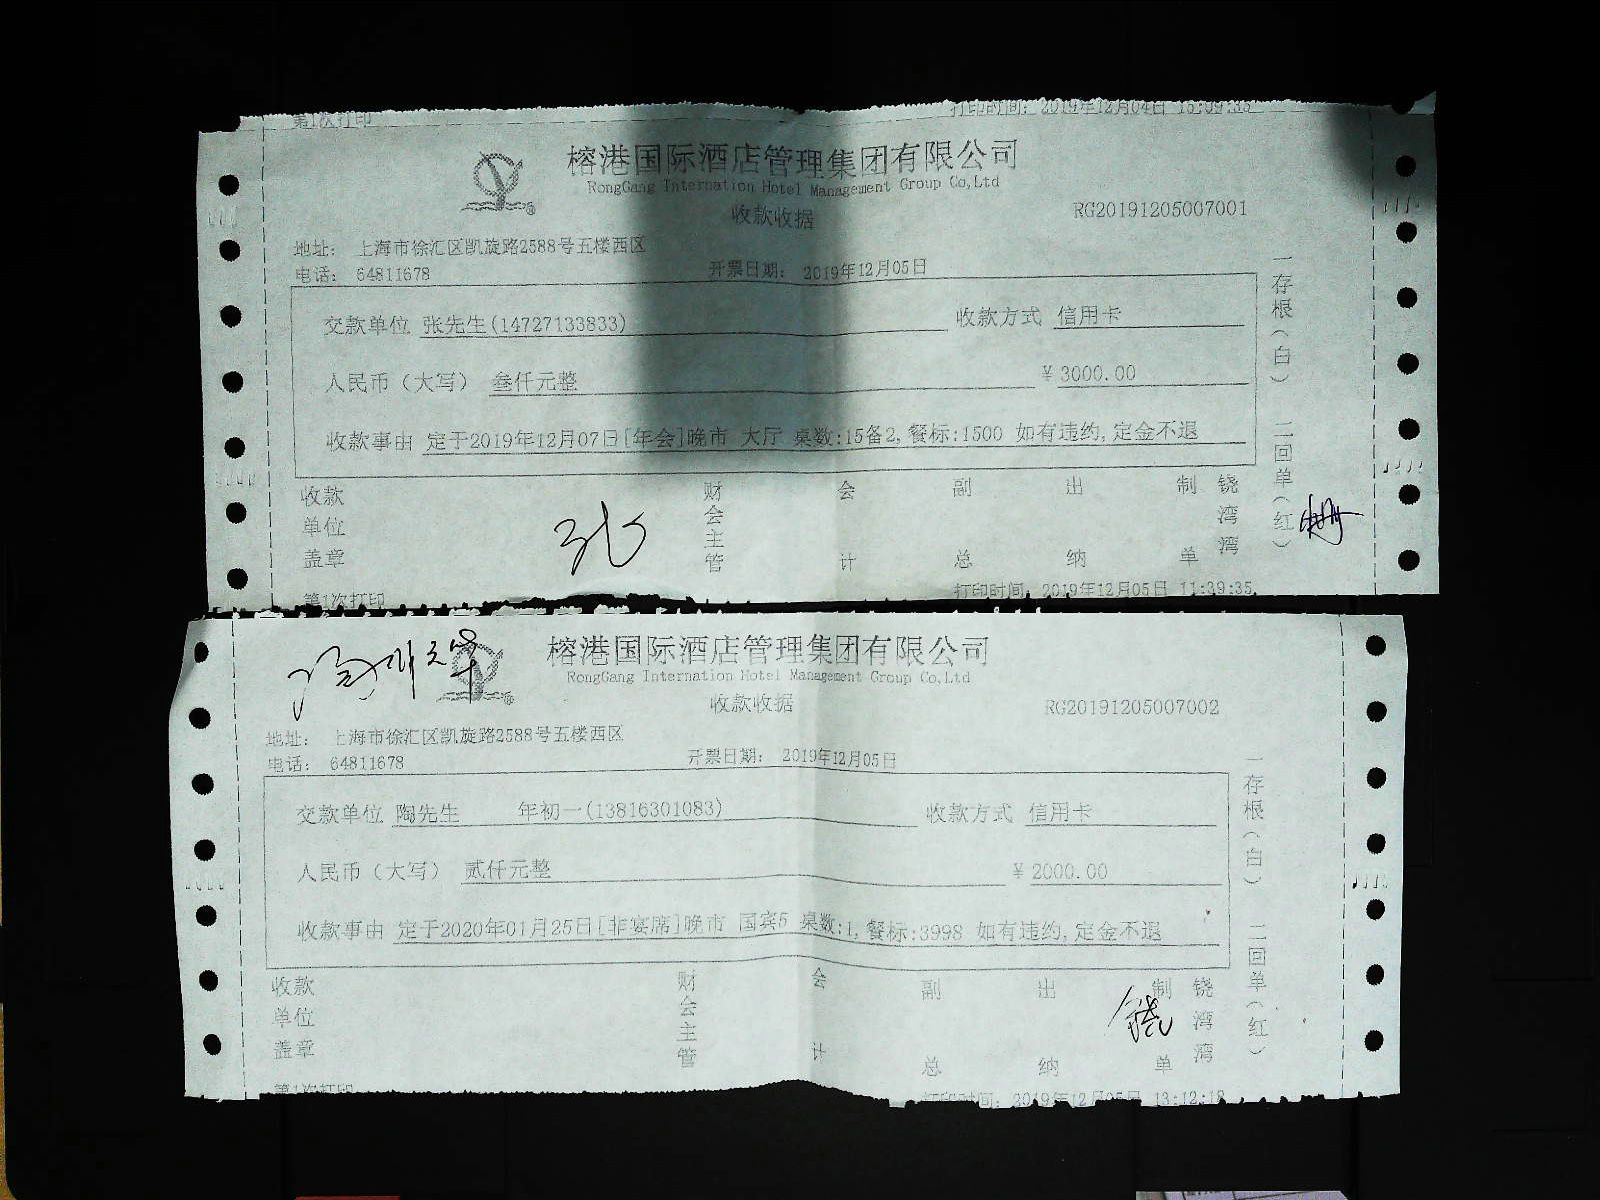 第1次打印 打印时间: 2019年12月04日 15:09:33
榕港国际酒店管理集团有限公司
RongGang Internation Hotel Management Group Co,Ltd
收款收据 RG20191205007001
地址: 上海市徐汇区凯旋路2588号五楼西区
电话: 64811678 开票日期: 2019年12月05日
交款单位 张先生(14727133833) 收款方式 信用卡
人民币（大写） 叁仟元整 ¥ 3000.00
收款事由 定于2019年12月07日[年会]晚市 大厅 桌数:15备2,餐标:1500 如有违约,定金不退
一存根（白） 二回单（红）
收款单位盖章 财会主管 会计 副总 出纳 制单 铙湾湾
张
第1次打印 打印时间: 2019年12月05日 11:39:35
榕港国际酒店管理集团有限公司
RongGang Internation Hotel Management Group Co,Ltd
收款收据 RG20191205007002
地址: 上海市徐汇区凯旋路2588号五楼西区
电话: 64811678 开票日期: 2019年12月05日
交款单位 陶先生 年初一(13816301083) 收款方式 信用卡
人民币（大写） 贰仟元整 ¥ 2000.00
收款事由 定于2020年01月25日[非宴席]晚市 国宾5 桌数:1,餐标:3998 如有违约,定金不退
一存根（白） 二回单（红）
收款单位盖章 财会主管 会计 副总 出纳 制单 铙湾湾
铙
第1次打印 打印时间: 2019年12月05日 13:12:18